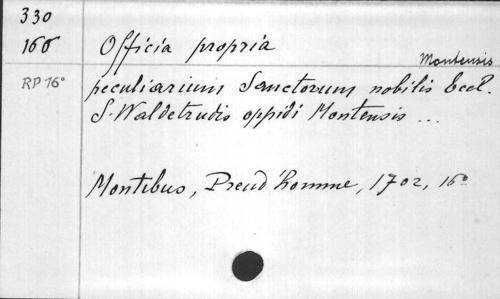 330
166
RP 16°
Officia propria
Montensis
peculiarium Sanctorum nobilis Eccl.
S. Waldetrudis oppidi Montensis ...
Montibus, Preud'homme, 1702, 16°